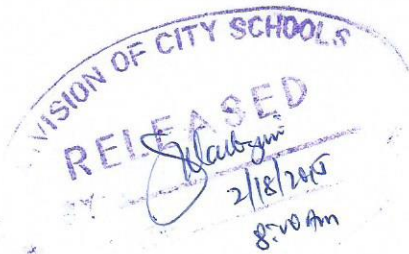 VISION OF CITY SCHOOLS
RELEASED
BY
2/18/2015
8:00 Am